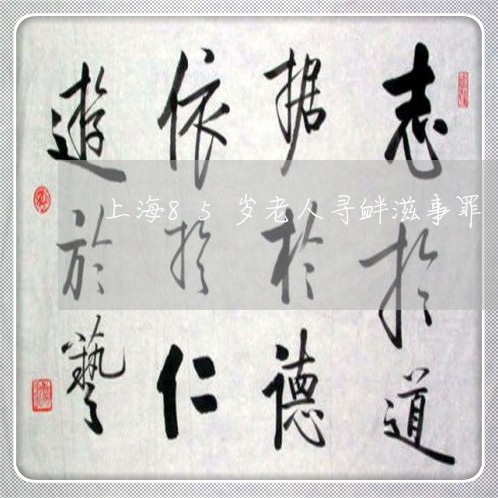 志於道
据於德
依於仁
遊於藝
上海85岁老人寻衅滋事罪